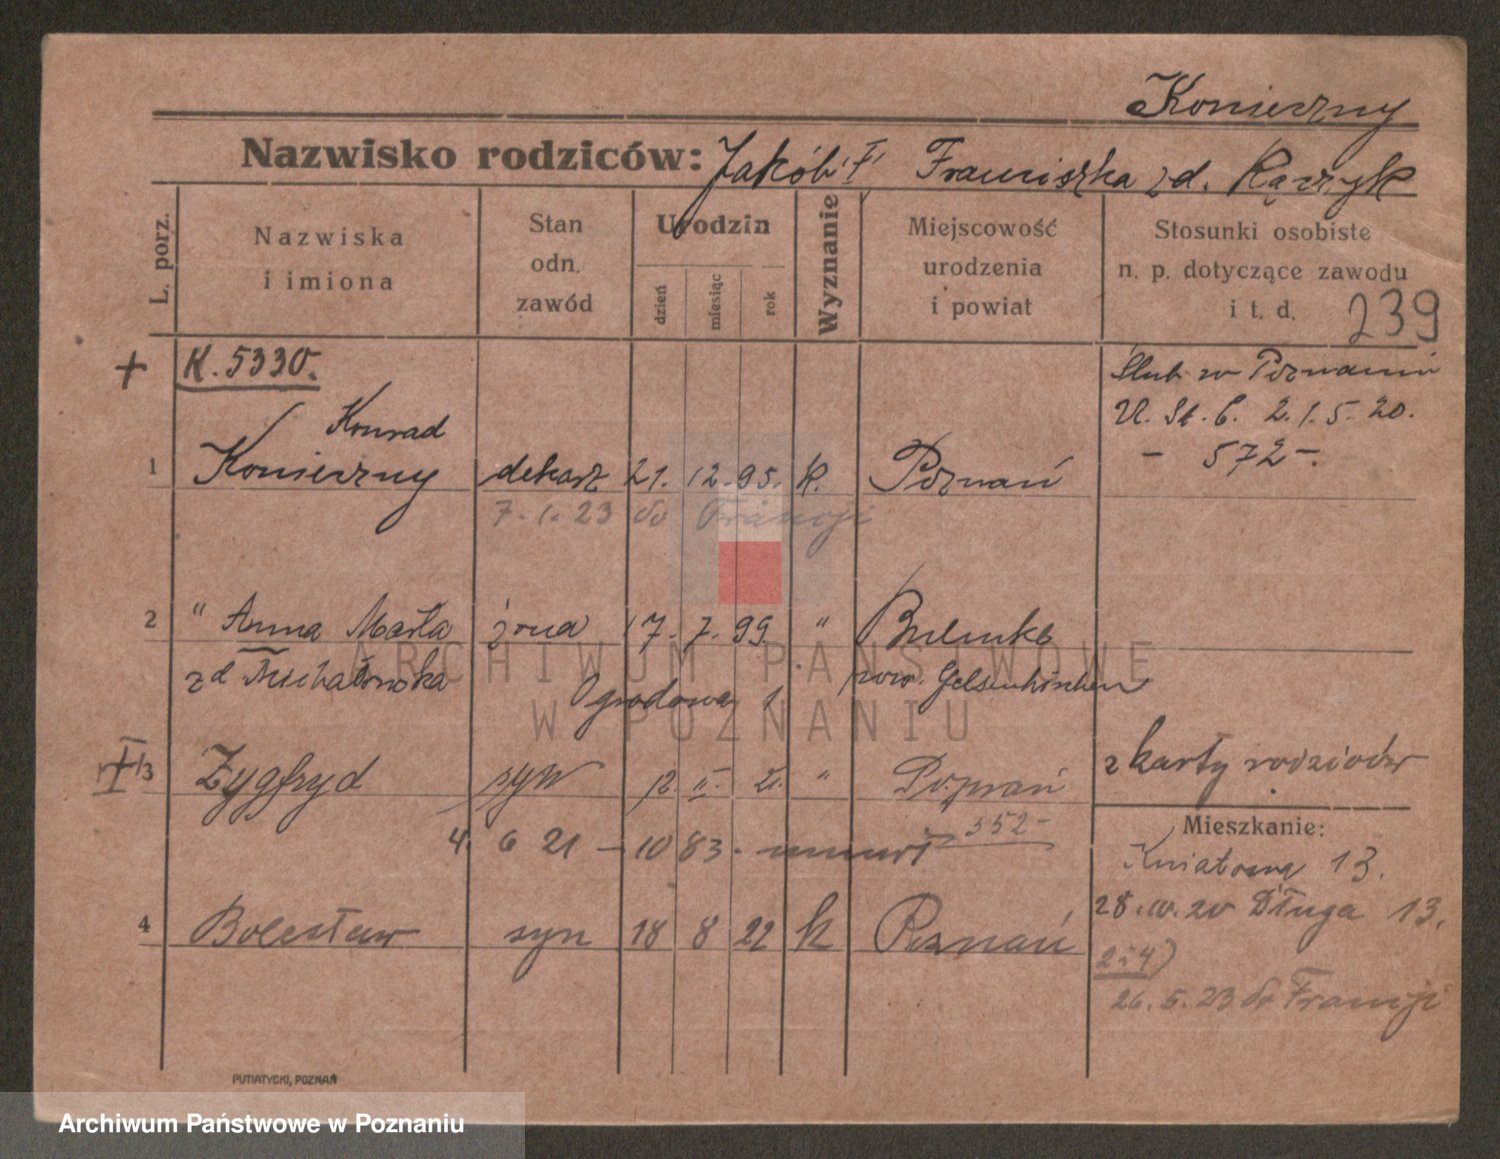 Konieczny
Nazwisko rodziców: Jakób i Franciszka zd. Kączyk
L. porz.
Nazwiska
i imiona
Stan
odn.
zawód
Urodzin
dzień
miesiąc
rok
Wyznanie
Miejscowość
urodzenia
i powiat
Stosunki osobiste
n. p. dotyczące zawodu
i t. d. 239
+ K. 5330.
Ślub w Poznaniu
U. St. C. 2.1.5.20.
- 572 -
Konrad
1 Konieczny dekarz 21. 12. 95. k. Poznań
7.1.23 do Francji
2 " Anna Marta żona 17. 7. 99. " Bulmke
zd Michałowska Ogrodowa 1 pow. Gelsenkirchen
3 Zygfryd syn 12. II. 21. " Poznań
z karty rodziców
352 -
4. 6 21 - 1083 - umarł
Mieszkanie:
Kwiatowa 13.
28.10.20 Długa 13.
4 Bolesław syn 18 8 22 k Poznań
2 i 4)
26.5.23 do Francji
PUTIATYCKI, POZNAŃ
ARCHIWUM PAŃSTWOWE
W POZNANIU
Archiwum Państwowe w Poznaniu